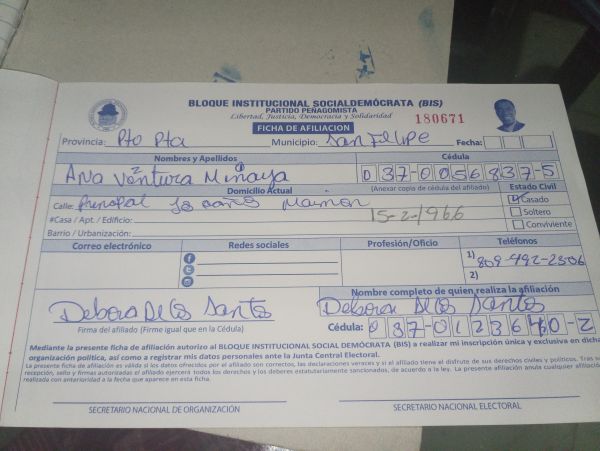 BLOQUE INSTITUCIONAL SOCIALDEMÓCRATA (BIS)
PARTIDO PEÑAGOMISTA
Libertad, Justicia, Democracia y Solidaridad
180671
FICHA DE AFILIACION
Provincia: Pto Pta Municipio: San Felipe Fecha:
Nombres y Apellidos Cédula
Ana Ventura Minaya 037-0056837-5
Domicilio Actual (Anexar copia de cédula del afiliado) Estado Civil
Calle: Prinsipal Maimon Casado
#Casa / Apt. / Edificio: 15-2-1966 Soltero
Barrio / Urbanización: Conviviente
Correo electrónico Redes sociales Profesión/Oficio Teléfonos
1) 809-492-2306
2)
Nombre completo de quien realiza la afiliación
Debora De los Santos Debora De los Santos
Firma del afiliado (Firme igual que en la Cédula) Cédula: 037-0123640-2
Mediante la presente ficha de afiliación autorizo al BLOQUE INSTITUCIONAL SOCIAL DEMÓCRATA (BIS) a realizar mi inscripción única y exclusiva en dicha
organización política, así como a registrar mis datos personales ante la Junta Central Electoral.
La presente ficha de afiliación es válida si los datos ofrecidos por el afiliado son correctos, las declaraciones veraces y si el afiliado tiene el disfrute de sus derechos civiles y políticos. Tras su
recepción, sello y firmas autorizadas el afiliado ejercerá todos los derechos y los deberes estatutariamente sancionados, de acuerdo a la ley. La presente afiliación anula cualquier afiliación
realizada con anterioridad a la fecha que aparece en esta ficha.
SECRETARIO NACIONAL DE ORGANIZACIÓN SECRETARIO NACIONAL ELECTORAL